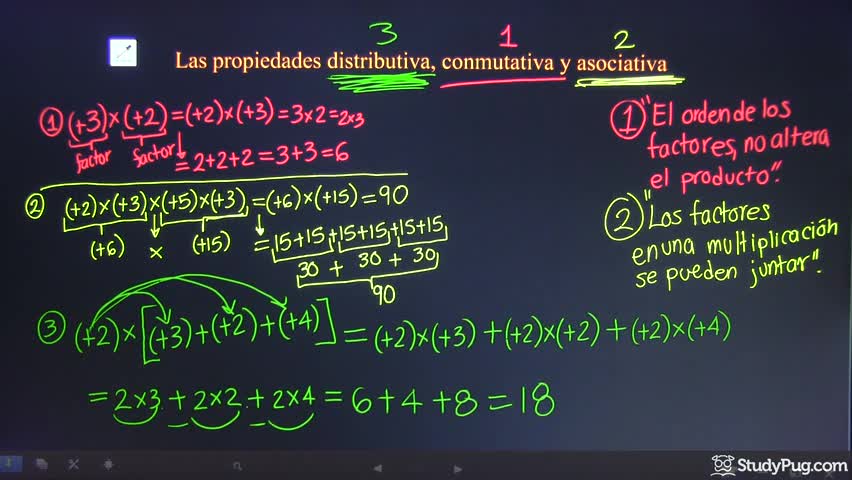 3 1 2
Las propiedades distributiva, conmutativa y asociativa
① (+3)×(+2)=(+2)×(+3)=3×2=2×3
factor factor
=2+2+2=3+3=6
② (+2)×(+3)×(+5)×(+3)=(+6)×(+15)=90
(+6) × (+15) =15+15+15+15+15+15
30 + 30 + 30
90
③ (+2)×[(+3)+(+2)+(+4)]=(+2)×(+3)+(+2)×(+2)+(+2)×(+4)
=2×3+2×2+2×4=6+4+8=18
① "El orden de los
factores, no altera
el producto".
② "Los factores
en una multiplicación
se pueden juntar".
StudyPug.com